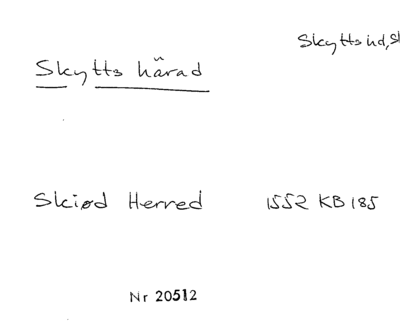 Skytts hd, Sk
Skytts härad
Skiød Herred 1552 KB 185
Nr 20512